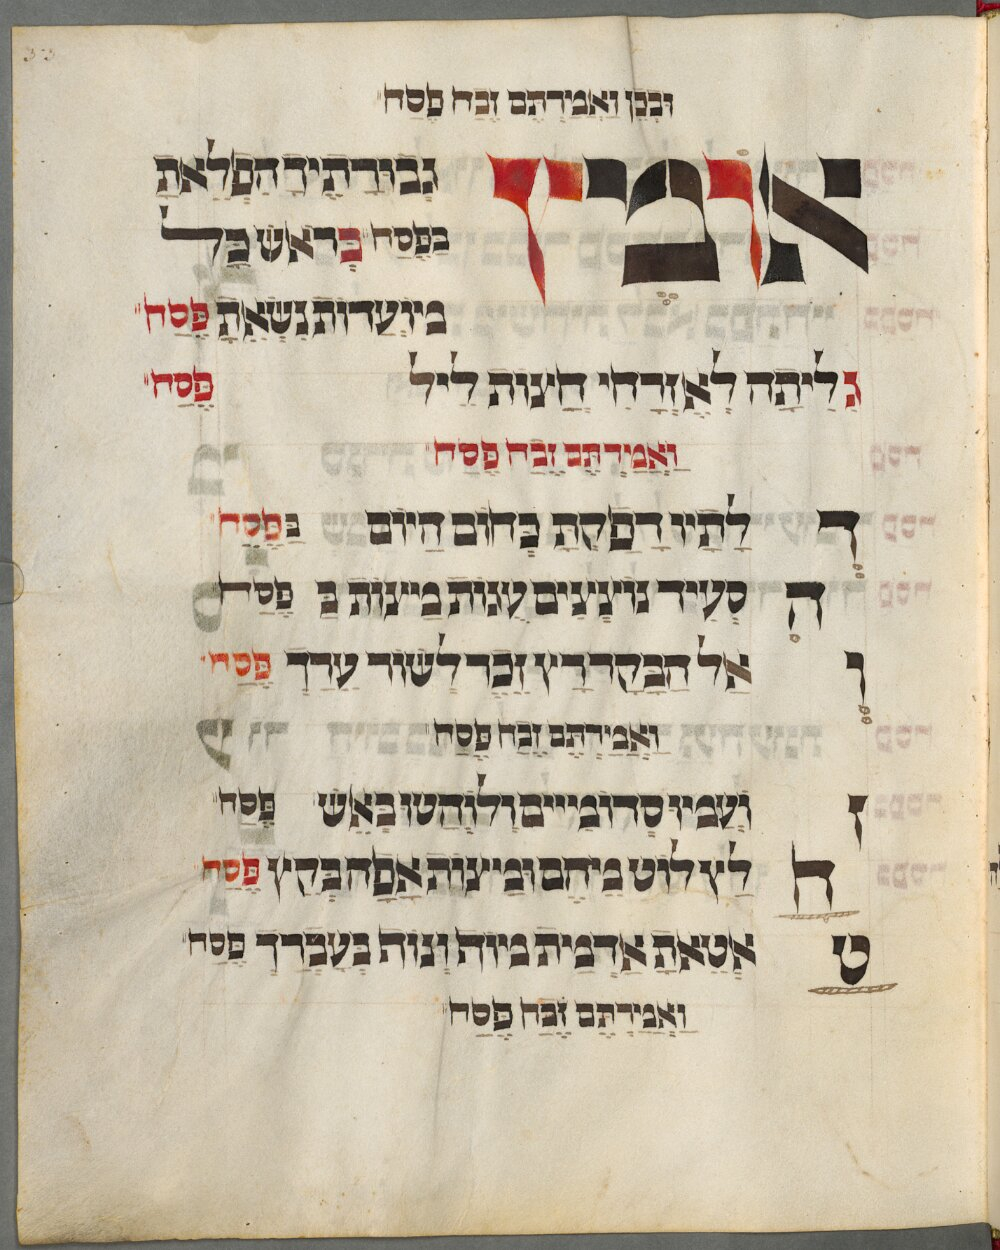 33
וּבְכֵן וַאֲמַרְתֶּם זֶבַח פֶּסַח
אוֹמֶץ גְּבוּרֹתֶיךָ הִפְלֵאתָ
בַּפֶּסַח בְּרֹאשׁ כָּל
מוֹעֲדוֹת נִשֵּׂאתָ פֶּסַח
גִּלִּיתָה לְאֶזְרָחִי חֲצוֹת לֵיל פֶּסַח
וַאֲמַרְתֶּם זֶבַח פֶּסַח
דְּלָתָיו דָּפַקְתָּ כְּחוֹם הַיּוֹם בַּפֶּסַח
הִסְעִיד נוֹצְצִים עֻגוֹת מַצּוֹת בַּ פֶּסַח
וְאֶל הַבָּקָר רָץ זֵכֶר לְשׁוֹר עֵרֶךְ פֶּסַח
וַאֲמַרְתֶּם זֶבַח פֶּסַח
זוֹעֲמוּ סְדוֹמִיִּים וְלוֹהֲטוּ בָּאֵשׁ פֶּסַח
חֻלַּץ לוֹט מֵהֶם וּמַצּוֹת אָפָה בְּקֵץ פֶּסַח
טִאטֵאתָ אַדְמַת מוֹף וְנוֹף בְּעָבְרְךָ פֶּסַח
וַאֲמַרְתֶּם זֶבַח פֶּסַח